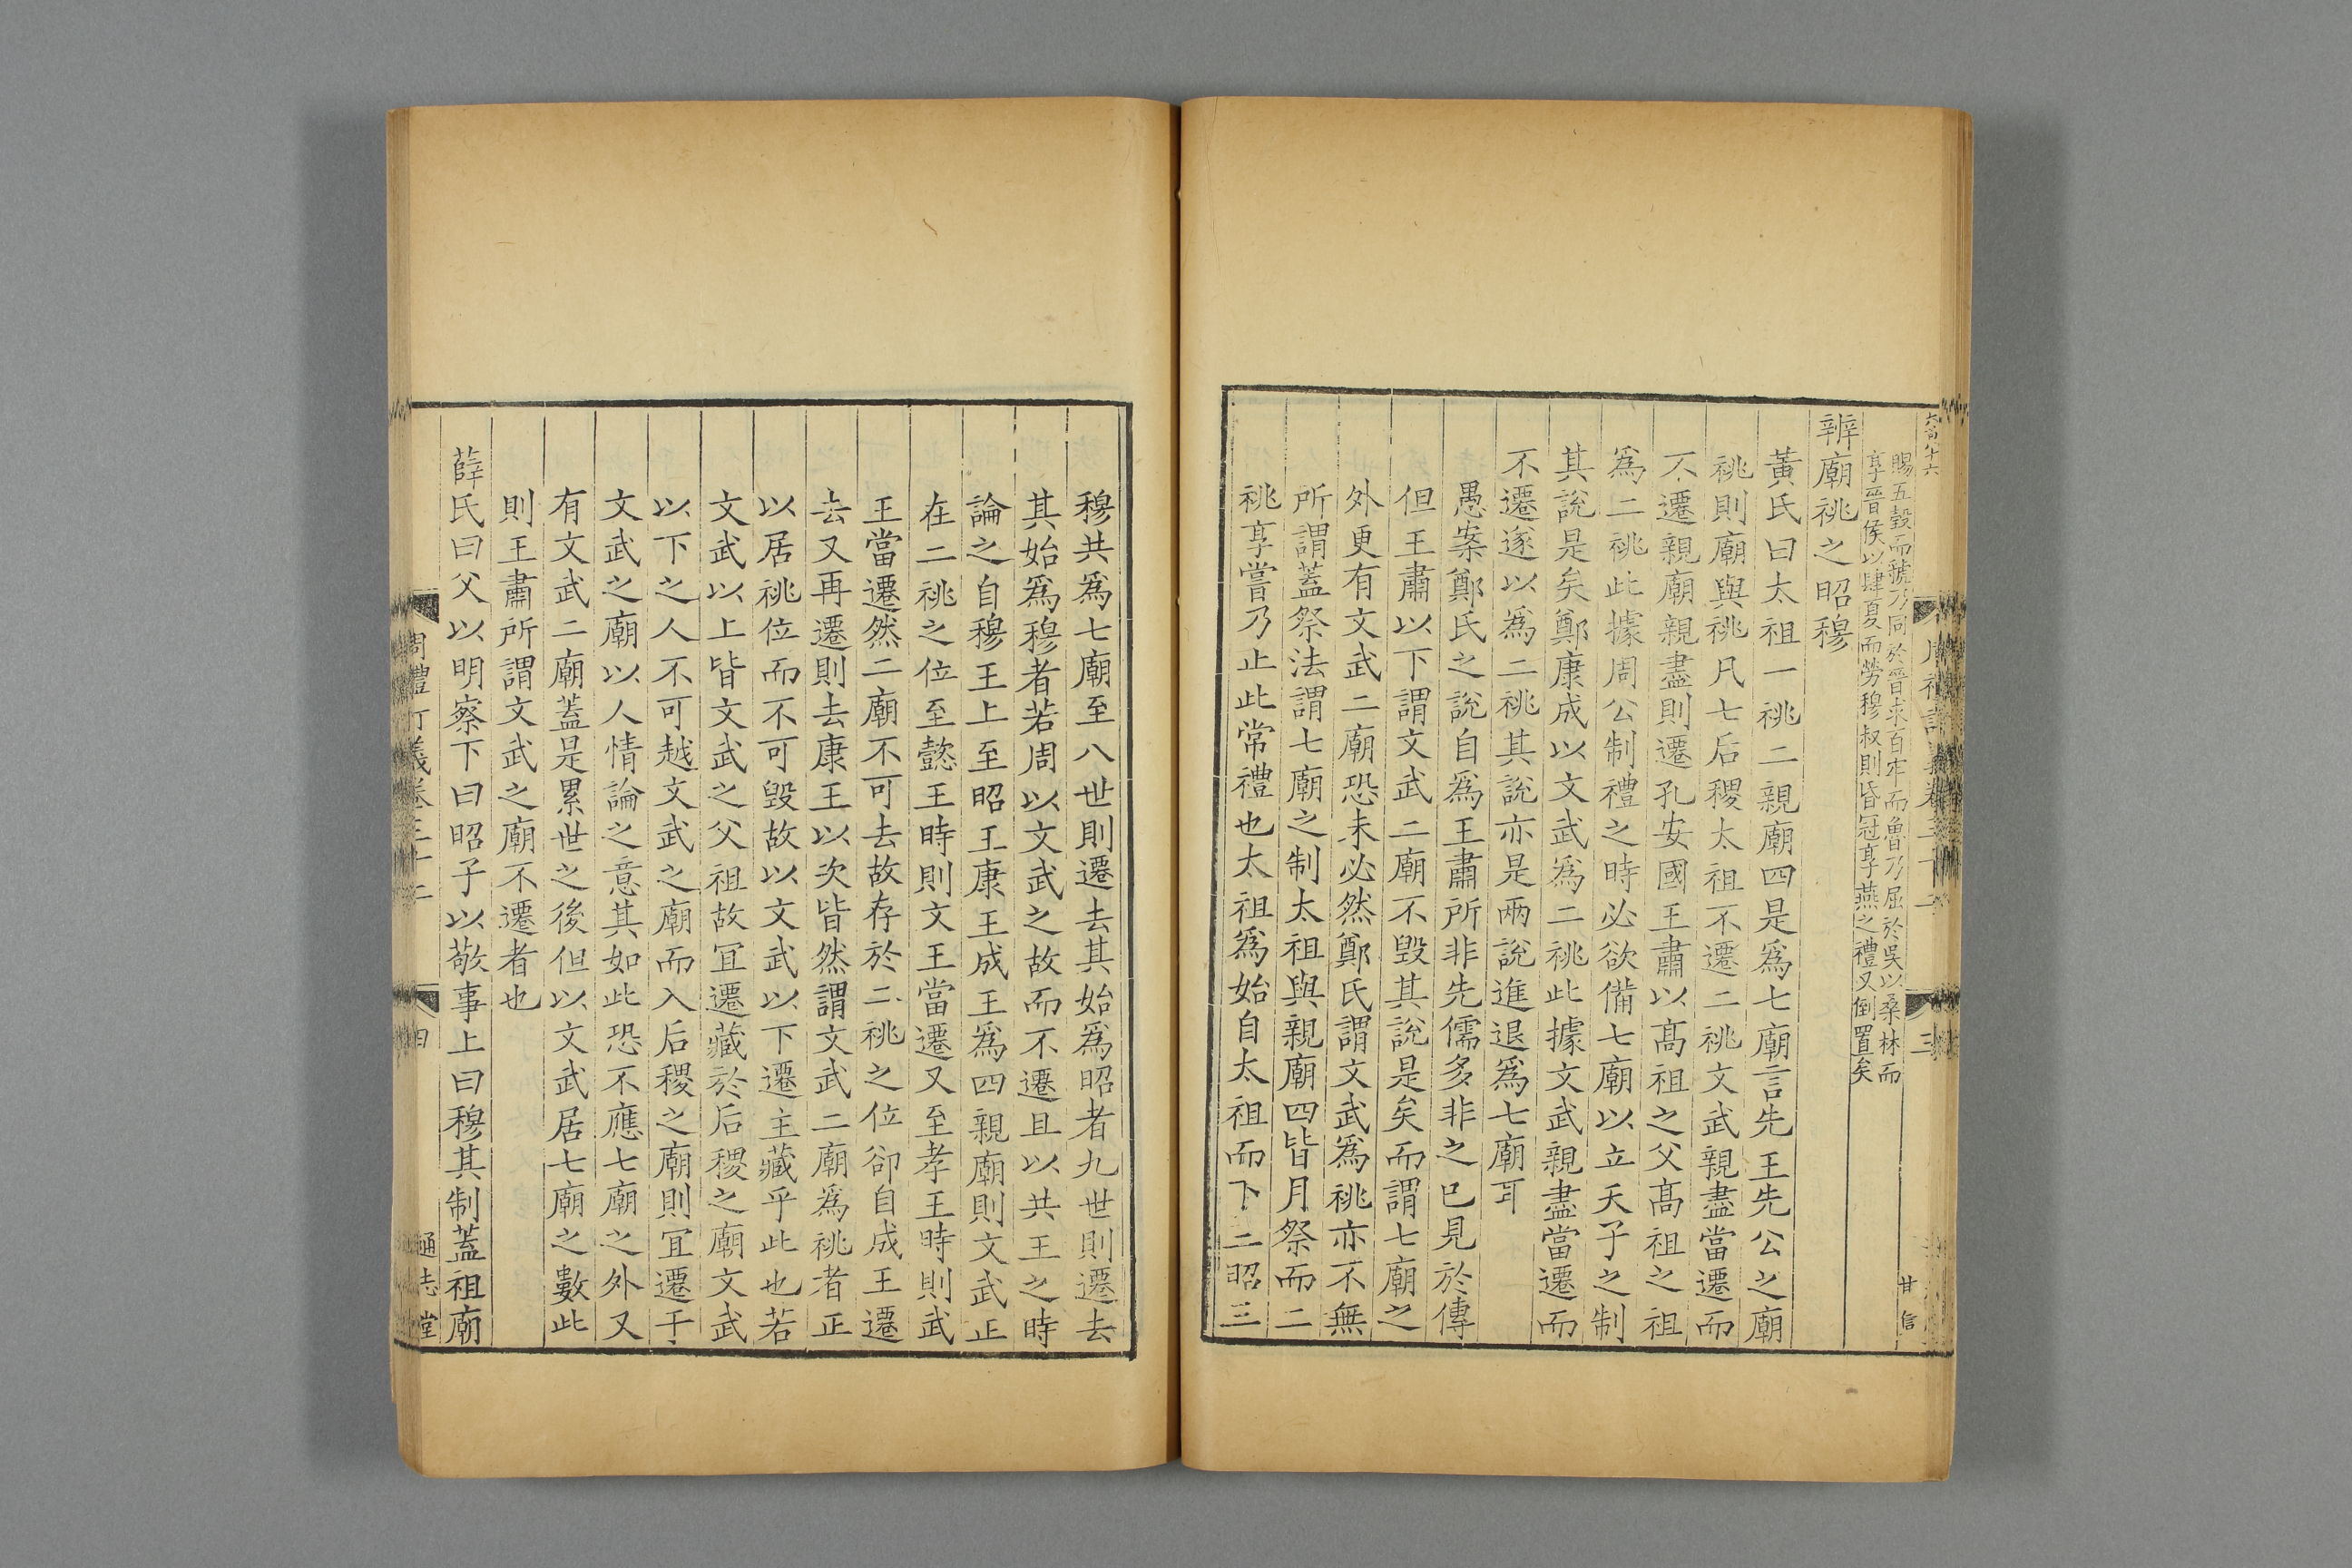 賜五穀而虢乃同於晉求百牢而魯乃屈於吳以桑林而
享晉侯以肆夏而勞穆叔則昏冠享燕之禮又倒置矣
辨廟祧之昭穆
黃氏曰太祖一祧二親廟四是爲七廟言先王先公之廟
祧則廟與祧凡七后稷太祖不遷二祧文武親盡當遷而
不遷親廟親盡則遷孔安國王肅以高祖之父高祖之祖
爲二祧此據周公制禮之時必欲備七廟以立天子之制
其說是矣鄭康成以文武爲二祧此據文武親盡當遷而
不遷遂以爲二祧其說亦是兩說進退爲七廟耳
愚案鄭氏之說自爲王肅所非先儒多非之已見於傳
但王肅以下謂文武二廟不毀其說是矣而謂七廟之
外更有文武二廟恐未必然鄭氏謂文武爲祧亦不無
所謂蓋祭法謂七廟之制太祖與親廟四皆月祭而二
祧享嘗乃止此常禮也太祖爲始自太祖而下二昭三
甘信
穆共爲七廟至八世則遷去其始爲昭者九世則遷去
其始爲穆者若周以文武之故而不遷且以共王之時
論之自穆王上至昭王康王成王爲四親廟則文武正
在二祧之位至懿王時則文王當遷又至孝王時則武
王當遷然二廟不可去故存於二祧之位卻自成王遷
去又再遷則去康王以次皆然謂文武二廟爲祧者正
以居祧位而不可毀故以文武以下遷主藏乎此也若
文武以上皆文武之父祖故宜遷藏於后稷之廟文武
以下之人不可越文武之廟而入后稷之廟則宜遷于
文武之廟以人情論之意其如此恐不應七廟之外又
有文武二廟蓋是累世之後但以文武居七廟之數此
則王肅所謂文武之廟不遷者也
薛氏曰父以明察下曰昭子以敬事上曰穆其制蓋祖廟
通志堂